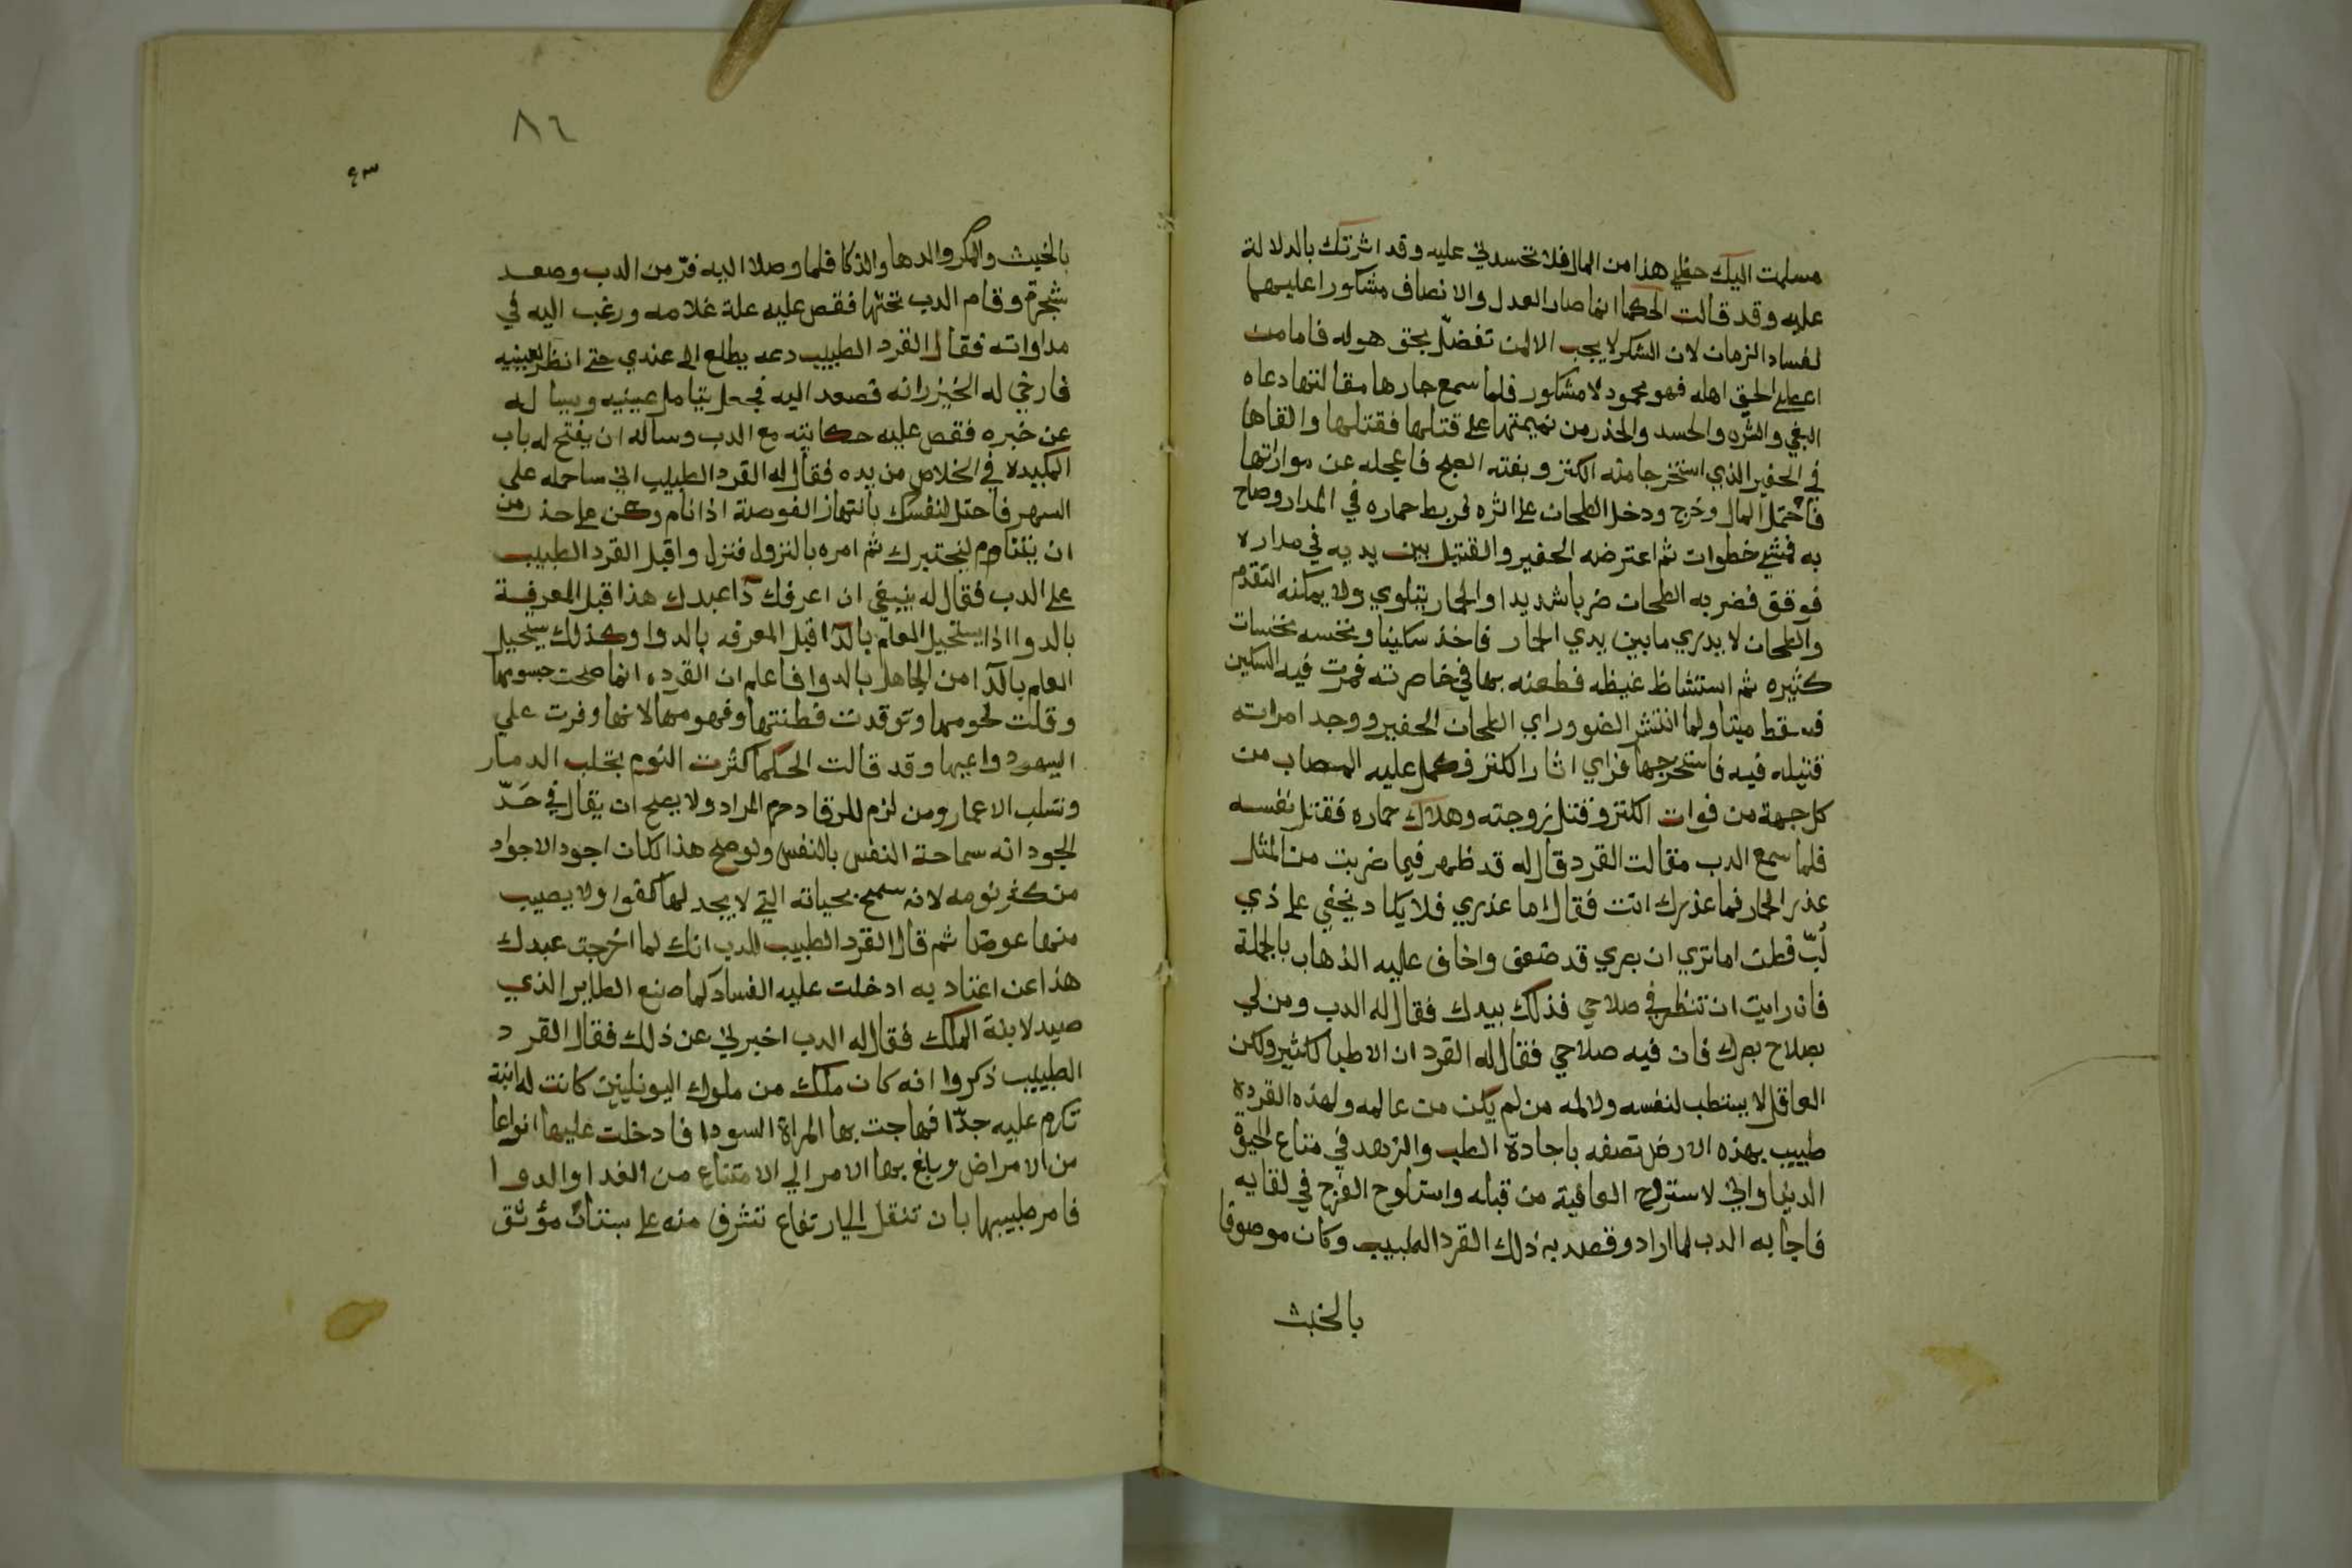 مسلمت اليك حظي هذا من المال فلا تحسدني عليه وقد اثرتك بالدلالة
عليه وقد قالت الحكما انما صار العدل والانصاف مشكورا عليهما
لفساد الزمان لان الشكر لا يجب الا لمن تفضل بحق هو له فاما من
اعطى الحق اهله فهو محمود لا مشكور فلما سمع جارها مقالتها دعاه
البغي والشره والحسد والحذر من نميمتها على قتلها فقتلها والقاها
في الحفير الذي استخرجا منه الكنز وبغته الصبح فاعجله عن مواراتها
فاحتمل المال وخرج ودخل الطحان على اثره فربط حماره في المدار وصاح
به فمشي خطوات ثم اعترضه الحفير والقتيل بين يديه في مداره
فوقف فضربه الطحان ضربا شديدا والحمار يتلوي ولا يمكنه التقدم
والطحان لا يدري ما بين يدي الحمار فاخذ سكينا ونخسه نخسات
كثيره ثم استشاظ غيظه فطعنه بها في خاصرته فمرت فيه السكين
فسقط ميتا ولما انتشر الضو وراي الطحان الحفير ووجد امراته
قتيله فيه فاستخرجها فراي اثار الكنز فكمل عليه المصاب من
كل جهة من فوات الكنز وقتل زوجته وهلاك حماره فقتل نفسه
فلما سمع الدب مقالت القرد قال له قد ظهر فيما ضربت من المثل
عذر الحمار فما عذرك انت فقال اما عذري فلا يكاد يخفي على ذي
لُبّ فطن اما تري ان بصري قد ضعف واخاف عليه الذهاب بالجملة
فان رايت ان تنظر في صلاحي فذلك بيدك فقال له الدب ومن لي
بصلاح بصرك فان فيه صلاحي فقال له القرد ان الاطبا كثير ولكن
العاقل لا يستطب لنفسه ولالمه من لم يكن من عالمه ولهذه القردة
طبيب بهذه الارض تصفه باجادة الطب والزهد في متاع الحيوة
الدنيا واني لاستروح العافية من قبله واستلوح الفرج في لقايه
فاجابه الدب لما اراد وقصد به ذلك القرد الطبيب وكان موصوفا
بالخبث
٨٦
بالخبث والمكر والدها والذكا فلما وصلا اليه فرّ من الدب وصعد
شجرة وقام الدب تحتها فقص عليه علة غلامه ورغب اليه في
مداواته فقال القرد الطبيب دعه يطلع الي عندي حتي انظر لعينيه
فارخي له الخيزرانه فصعد اليه فجعل يتامل عينيه ويسا له
عن خبره فقص عليه حكايته مع الدب وساله ان يفتح له باب
المكيدة في الخلاص من يده فقال له القرد الطبيب اني ساحمله على
السهر فاحتل لنفسك بانتهاز الفرصة اذا نام وكن على حذر من
ان يتناوم ليختبرك ثم امره بالنزول فنزل واقبل القرد الطبيب
على الدب فقال له ينبغي ان اعرفك دآ عبدك هذا قبل المعرفة
بالدوا اذا يستحيل العلم بالدآ قبل المعرفه بالدوا وكذلك يستحيل
العلم بالدآ من الجاهل بالدوا فاعلم ان القرده انما صحت جسومها
وقلت لحومها وتوقدت فطنتها وفهومها لانها وفرت علي
السهر دواعيها وقد قالت الحكما كثرت النوم يجلب الدمار
وتسلب الاعمار ومن لزم للرقاد حرم المراد ولا يصح ان يقال في حَدّ
الجود انه سماحة النفس بالنفس ولو صح هذا لكان اجود الاجواد
من كثر نومه لانه سمح بحياته التي لا يجد لها كفوا ولا يصيب
منها عوضا ثم قال القرد الطبيب للدب انك لما اخرجت عبدك
هذا عن اعتاد يه ادخلت عليه الفساد كما صنع الطاير الذي
صيد لابنة الملك فقال له الدب اخبرني عن ذلك فقال القرد
الطبيب ذكروا انه كان ملك من ملوك اليونانيين كانت له ابنة
تكرم عليه جدّا فهاجت بها المراة السودا فادخلت عليها انواعا
من الامراض وبلغ بها الامر الي الامتناع من الغدا والدوا
فامر طبيبها بان تنقل الي ارتفاع تشرف منه على بستان مؤنق